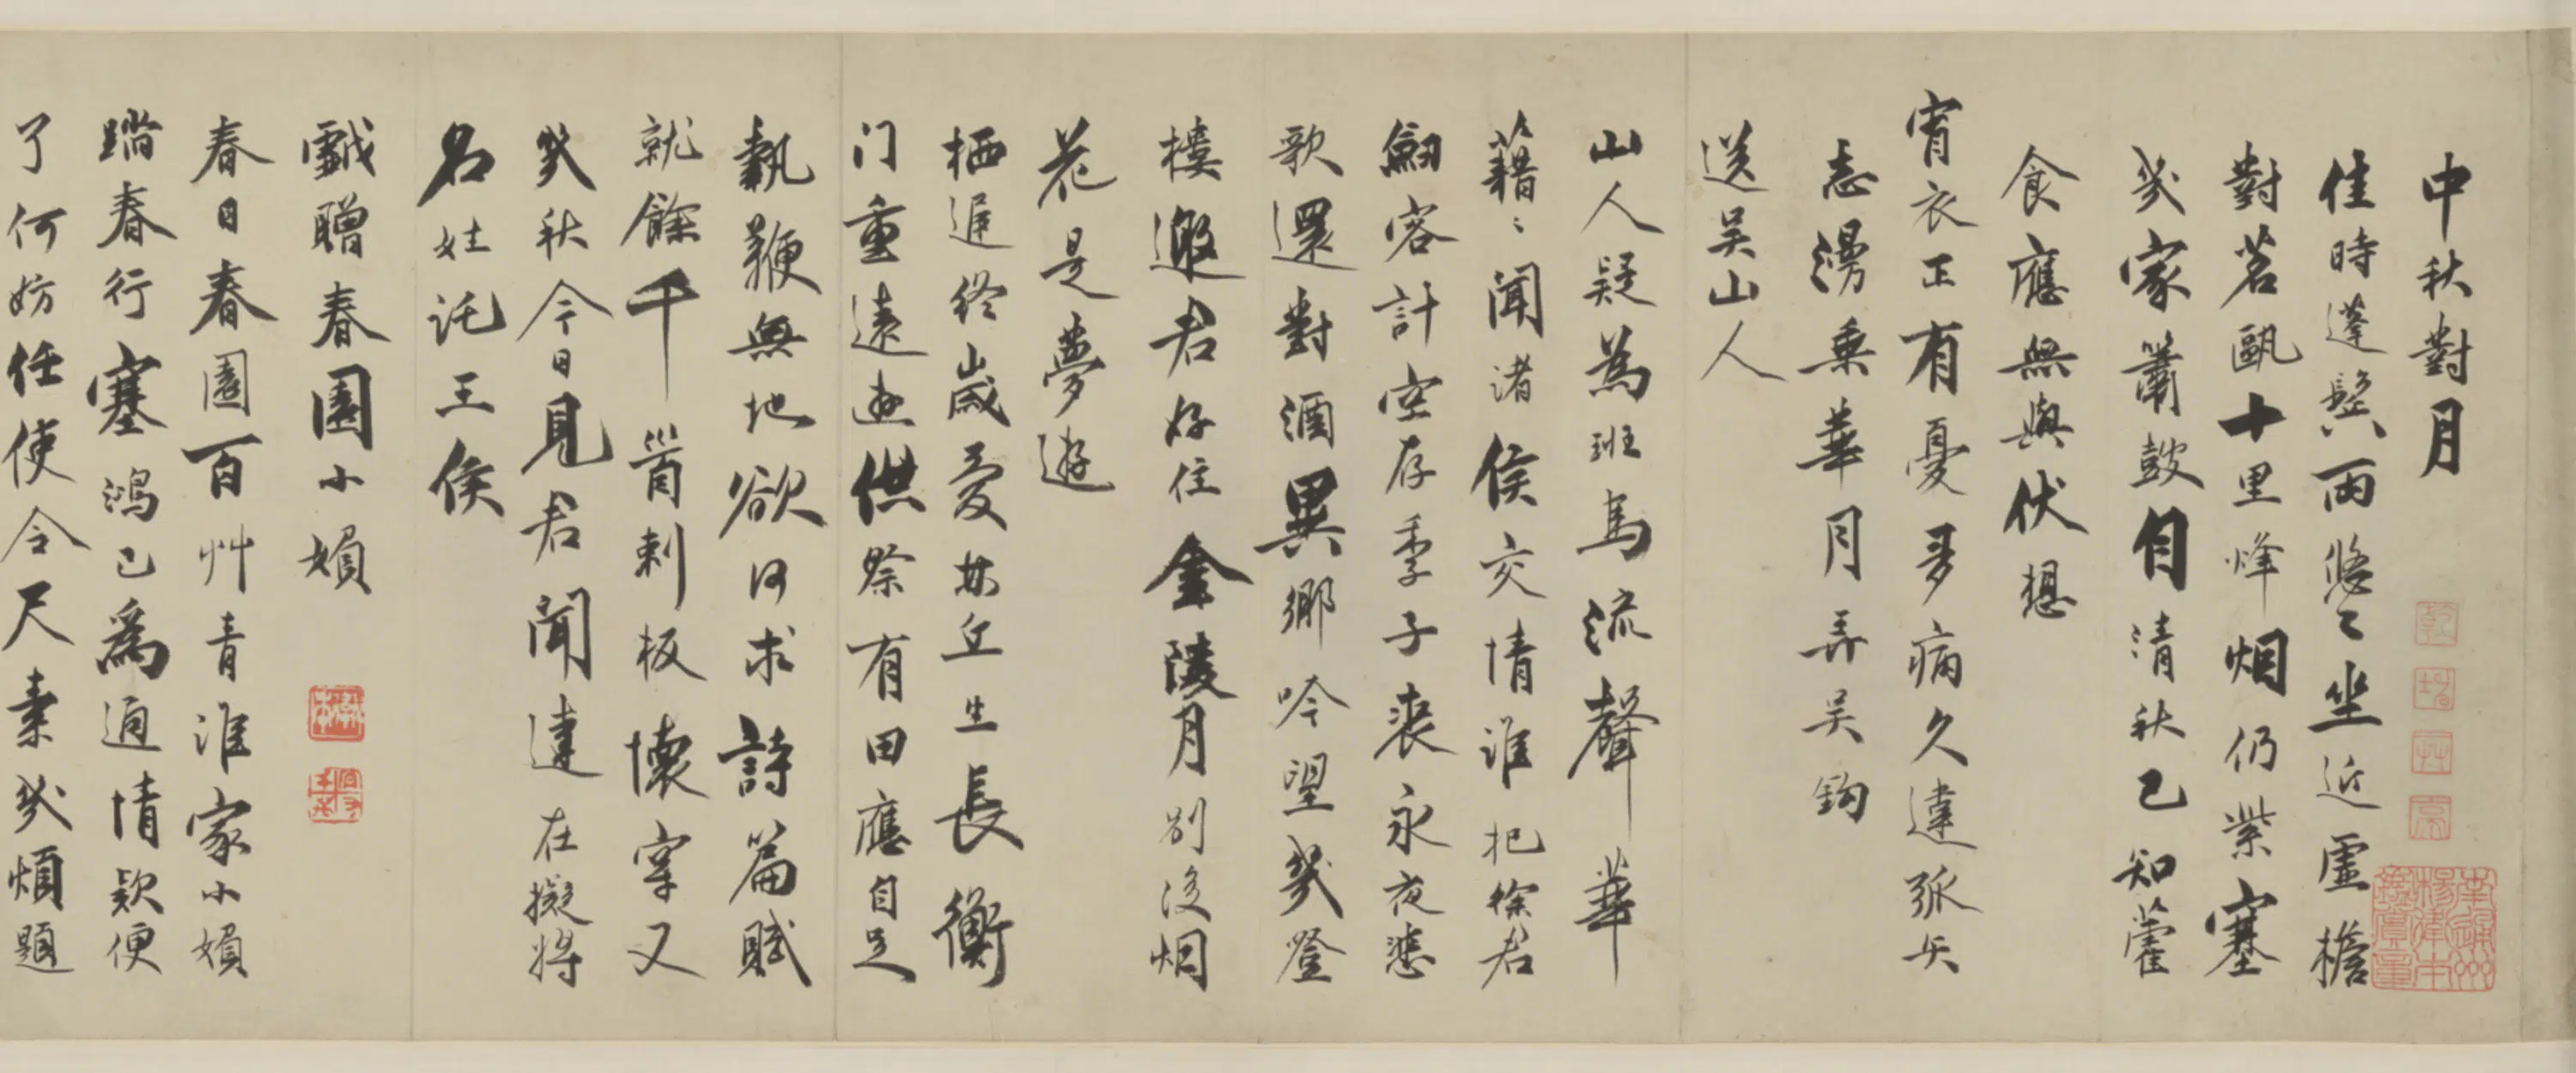 中秋對月
佳時蓬鬓兩悠〻坐近虛檐
對茗甌十里烽烟仍紫塞
幾家簫鼓自清秋已知藿
食應無與伏想
宵衣正有憂多病久違弧矢
志漫乗華月弄吴鈎
送吴山人
山人疑為班馬流聲華
藉〻聞諸侯交情誰把徐君
劒容計空存季子裘永夜悲
歌還對酒異鄉吟望幾登
樓邀君好住金陵月别後烟
花是夢遊
栖遲終歲愛林丘生長衡
门重遠遊供祭有田應自足
執鞭無地欲何求詩篇賦
就餘千首刺板懷穿又
幾秋今日見君聞達在擬將
名姓託王侯
戲贈春園小嬪
春日春園百艸青誰家小嬪
踏春行塞鴻已為通情欵便
了何妨任使令尺素幾煩題